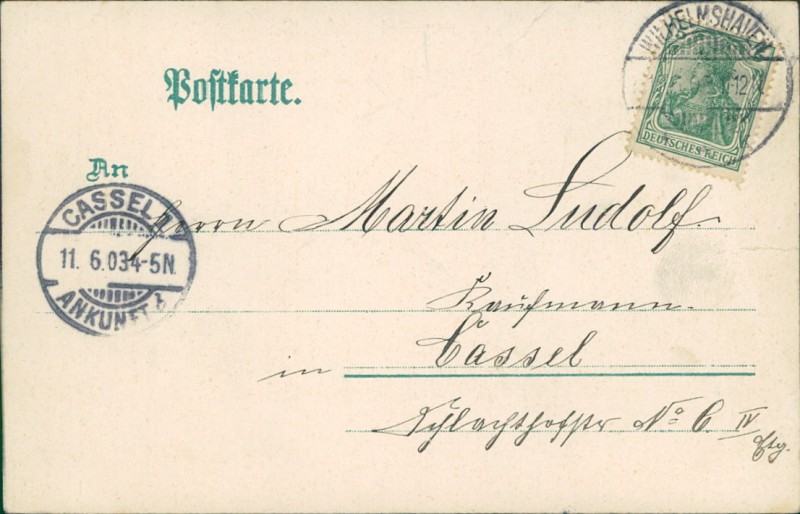 WILHELMSHAVEN
-12
DEUTSCHES REICH
Postkarte.
An
CASSEL 1
11. 6.03 4-5N.
ANKUNFT
Herrn Martin Ludolf.
Kaufmann.
in Cassel
Schlachthofstr No 6. IV
Etg.